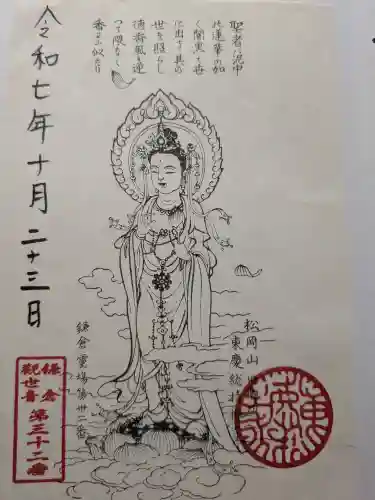 聖者ハ泥中
の蓮華の如
く闇黒の世
に出でゝ其の
世を照らし
徳香風を逆
つて隈なく
香るに似たり
令和七年十月二十三日
松岡山
東慶総持
鎌倉霊場第卅二番
鎌倉
観世音
第三十二番